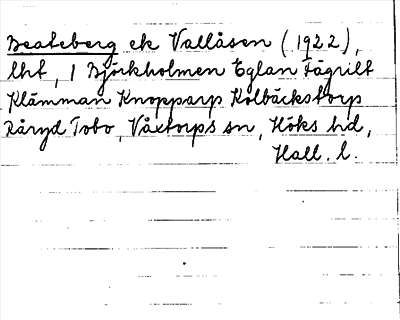 Beateberg ek Vallåsen (1922),
lht, 1 Björkholmen Eglan Fågrilt
Klämman Knopparp Kolbäckstorp
Råryd Tobo, Våxtorps sn, Höks hd,
Hall. l.